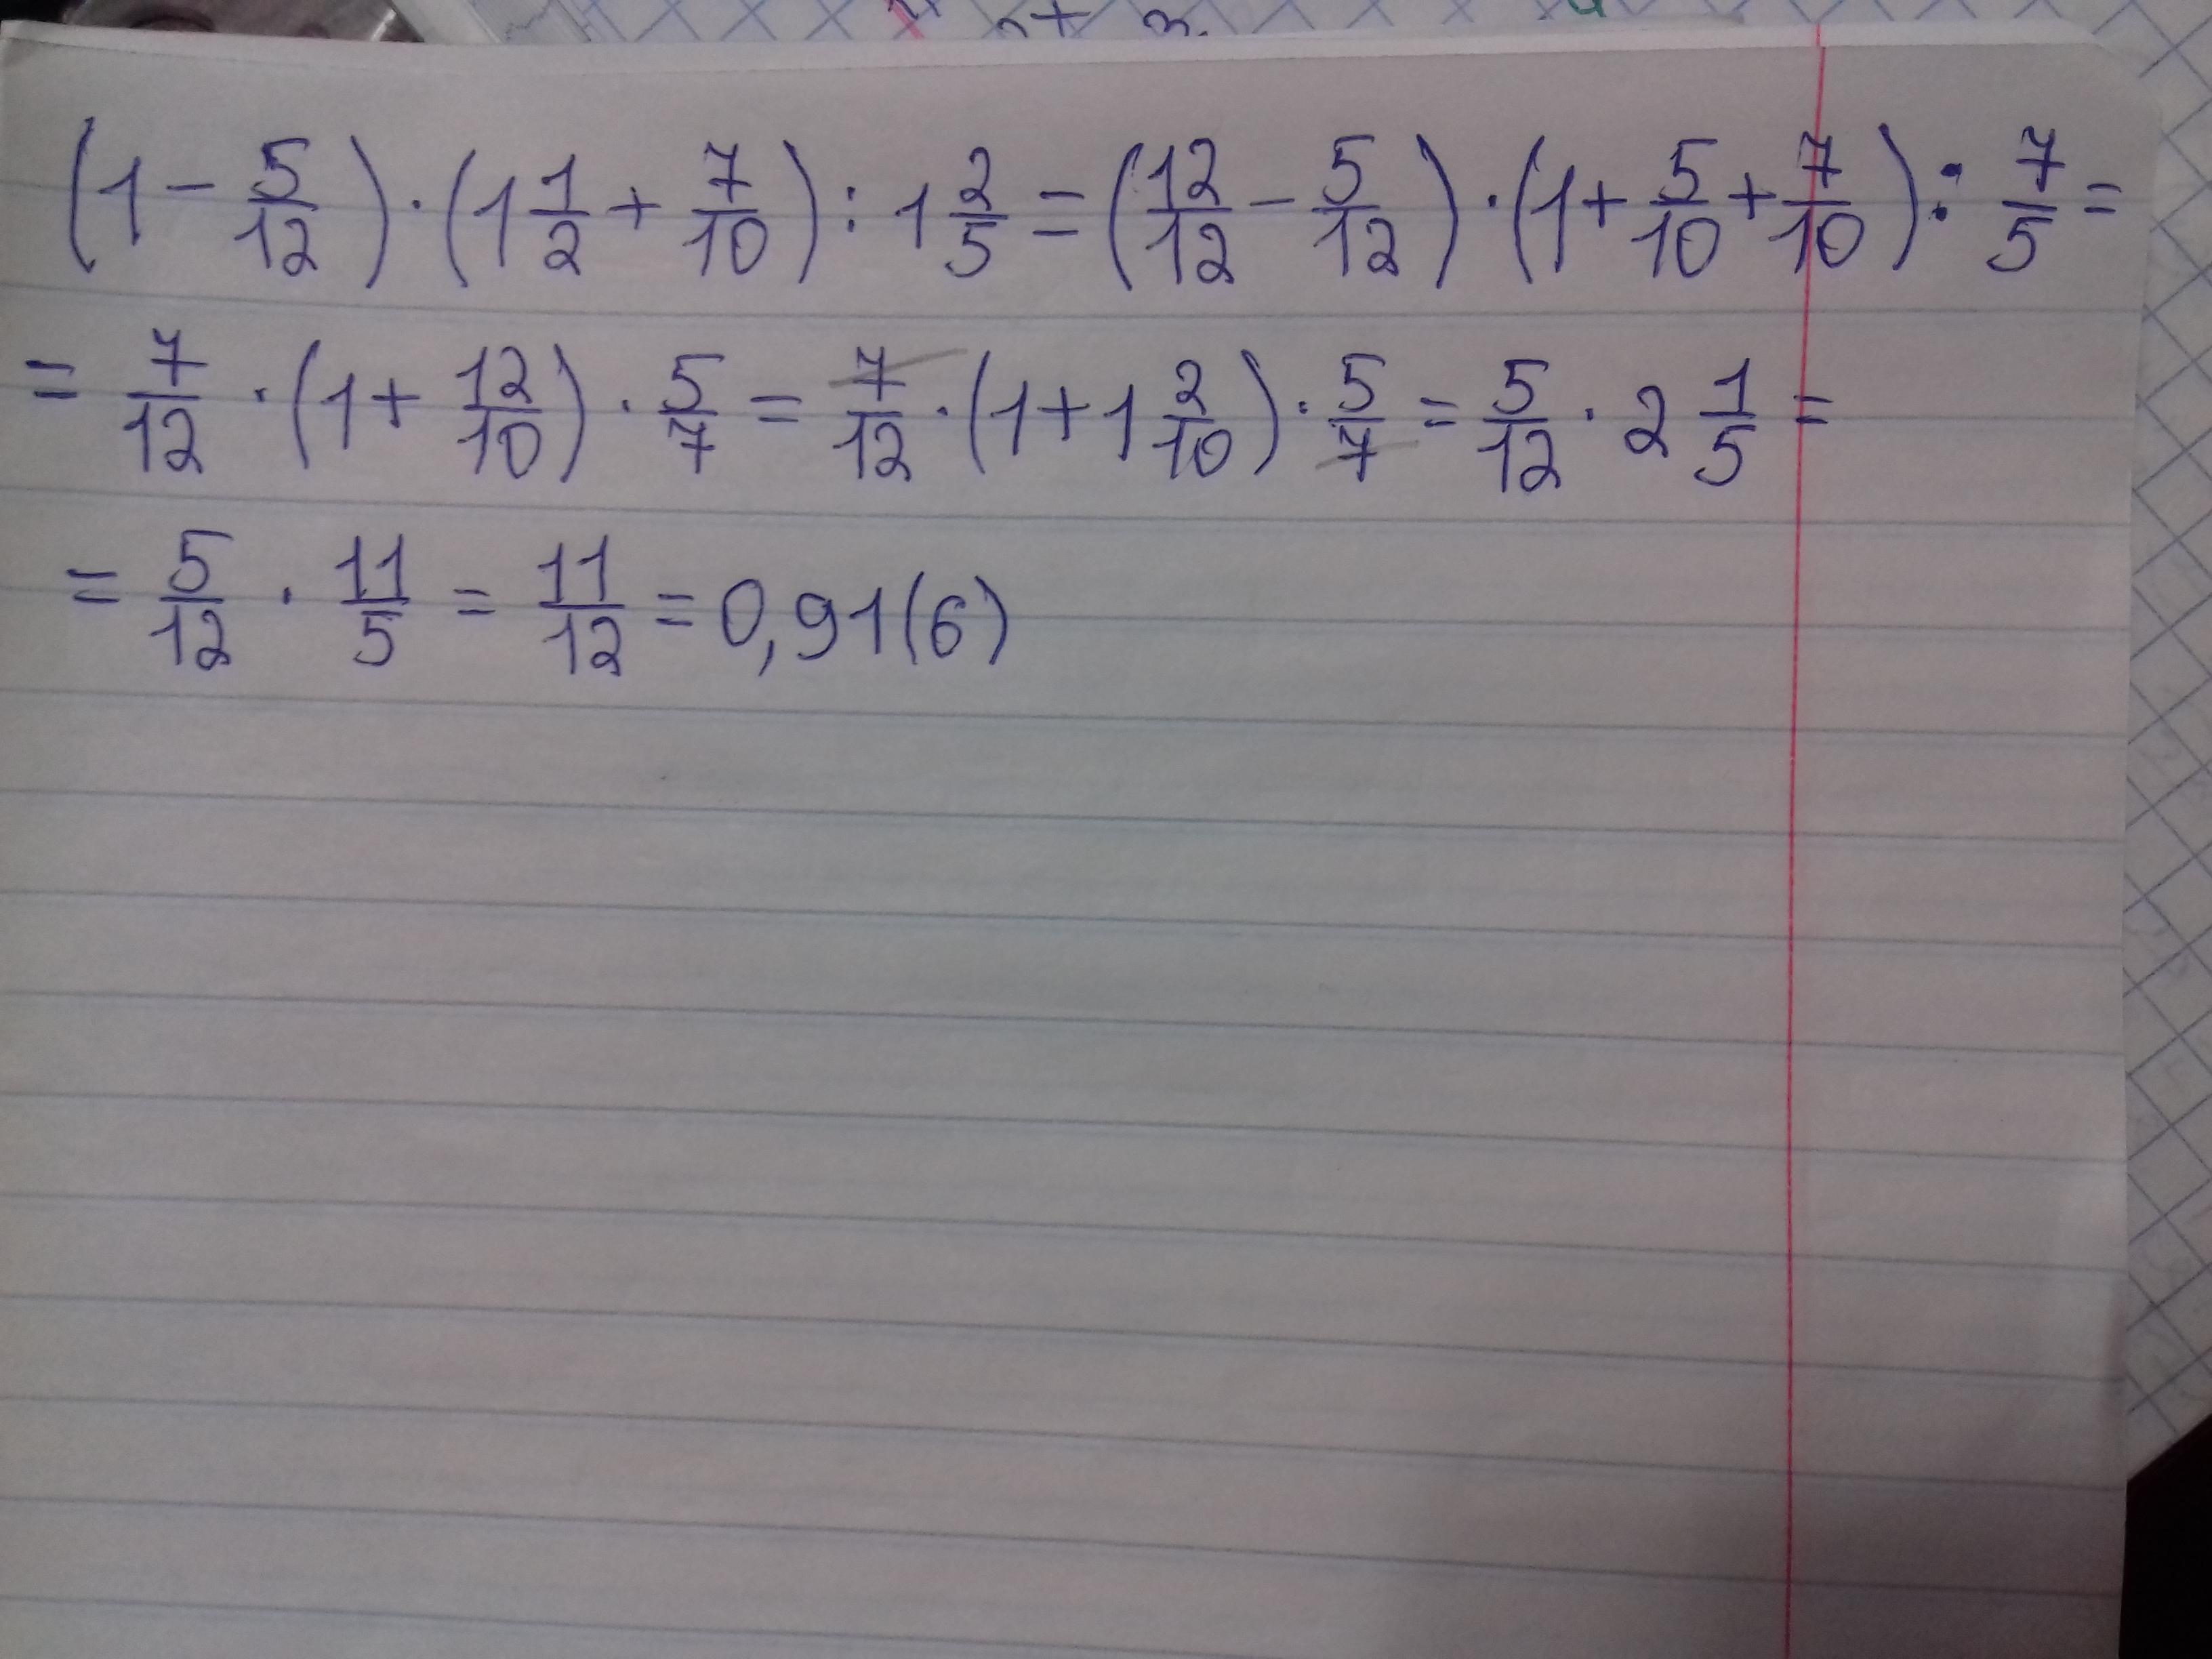 (1 - 5/12) · (1 1/2 + 7/10) : 1 2/5 = (12/12 - 5/12) · (1 + 5/10 + 7/10) : 7/5 =
= 7/12 · (1 + 12/10) · 5/7 = 7/12 · (1 + 1 2/10) · 5/7 = 5/12 · 2 1/5 =
= 5/12 · 11/5 = 11/12 = 0,91(6)